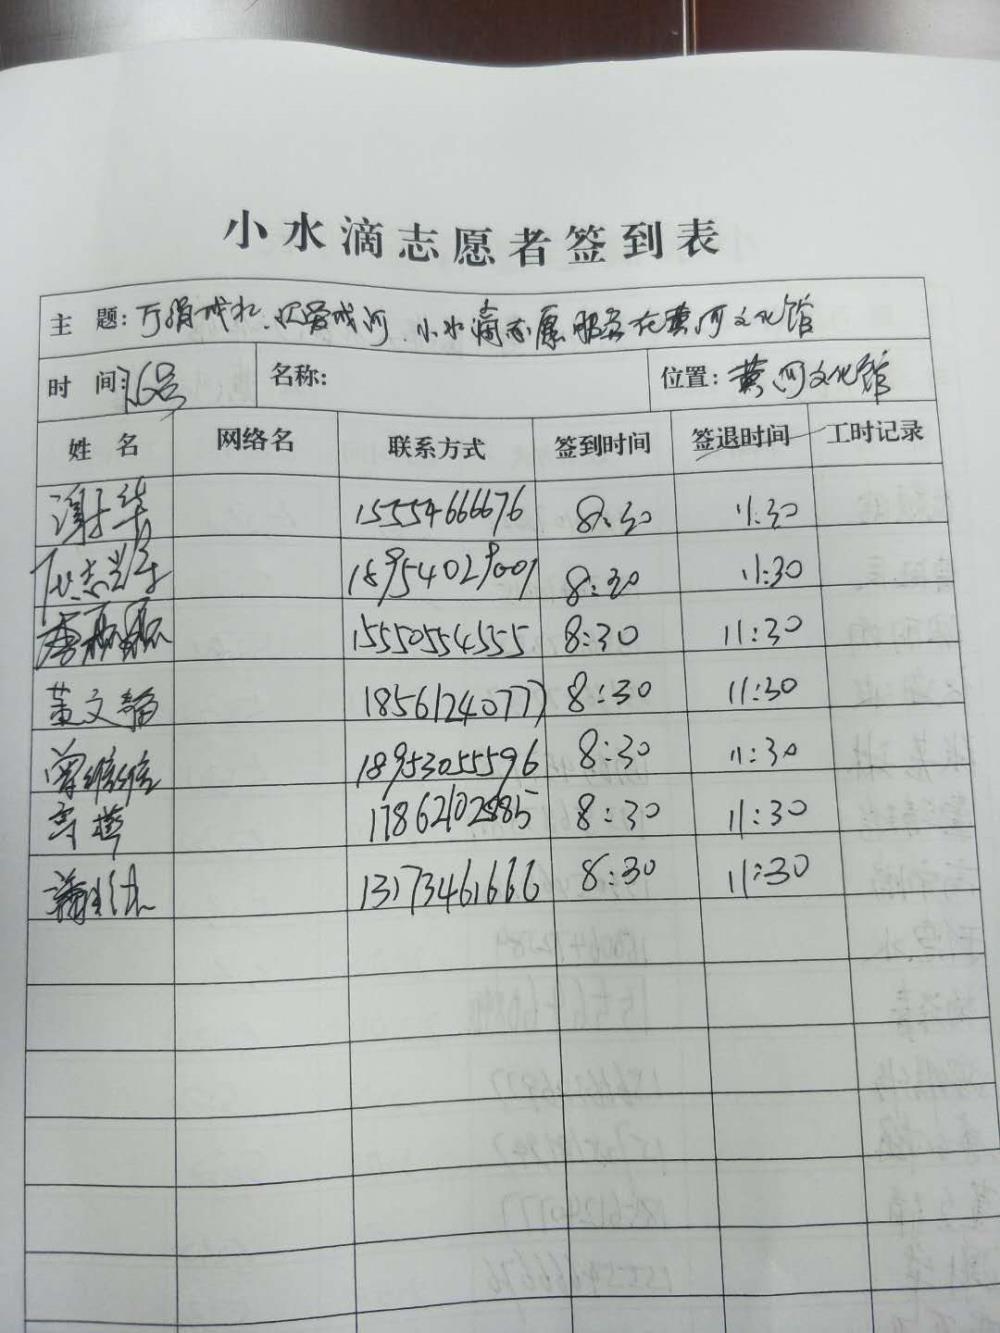 小水滴志愿者签到表
主 题: 万涓成水、汇爱成河 小水滴志愿服务在黄河文化馆
时 间: 26号 名称: 位置: 黄河文化馆
姓 名 网络名 联系方式 签到时间 签退时间 工时记录
谢华 15554666676 8:30 11:30
18954029001 8:30 11:30
李磊磊 15550554555 8:30 11:30
董文静 18561240777 8:30 11:30
曾维维 18953055596 8:30 11:30
高苹 17862102885 8:30 11:30
13173461666 8:30 11:30